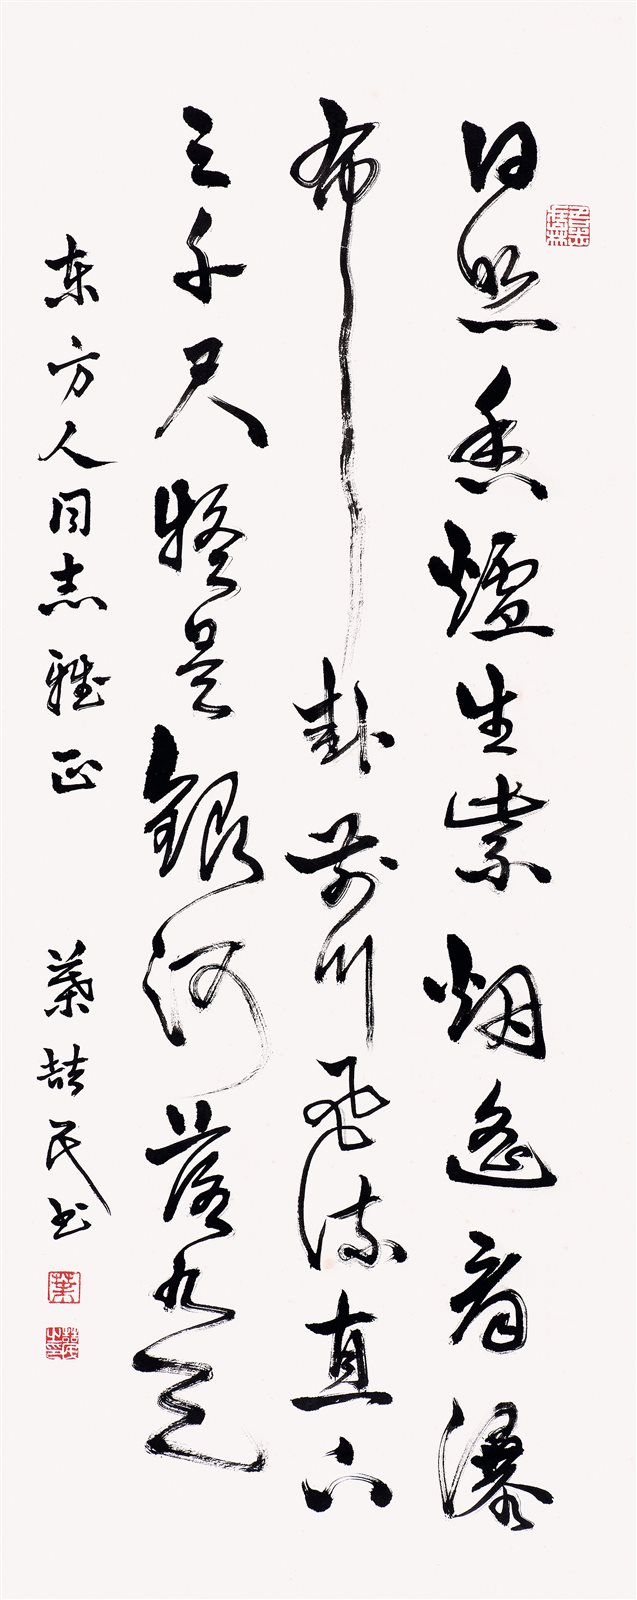 日照香爐生紫烟遥看瀑
布卦前川飛流直下
三千尺疑是銀河落九天
东方人同志雅正
葉喆民书
葉